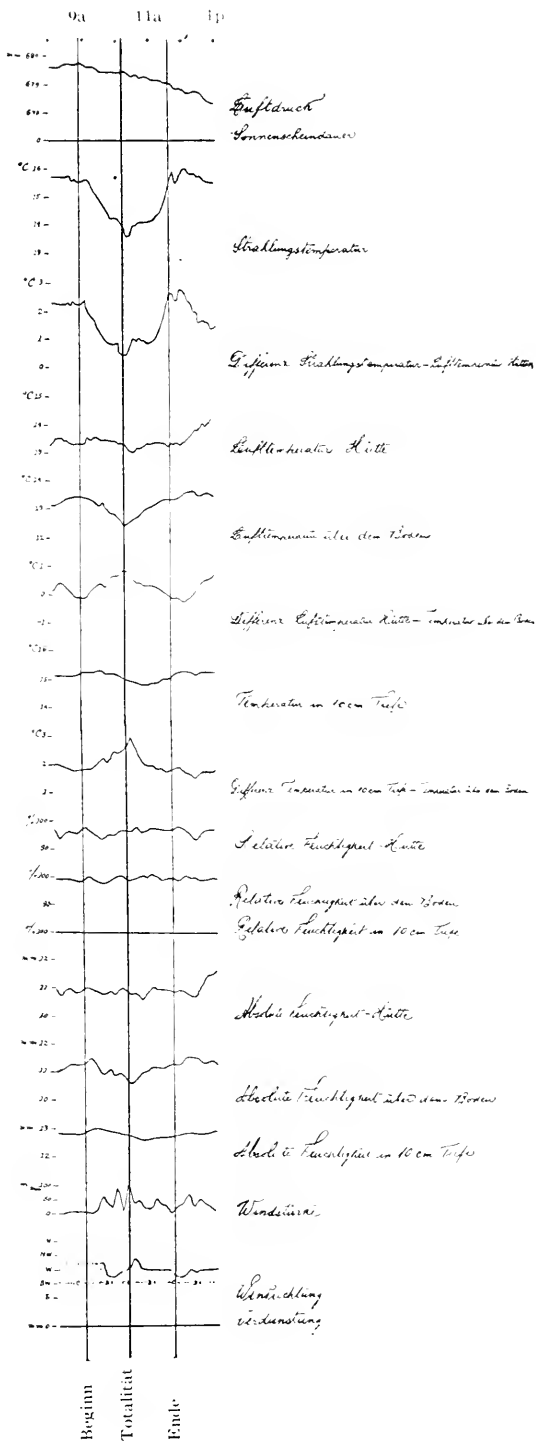 9a 11a 1p
mm 680
679
678
Luftdruck
0
Sonnenscheindauer
°C 16
15
14
13
Strahlungstemperatur
°C 3
2
1
0
Differenz Strahlungstemperatur - Lufttemperatur Hütte
°C 15
14
13
Lufttemperatur Hütte
°C 14
13
12
Lufttemperatur über dem Boden
°C 1
0
-1
Differenz Lufttemperatur Hütte - Temperatur über dem Boden
°C 16
15
14
Temperatur in 10 cm Tiefe
°C 3
2
1
Differenz Temperatur in 10 cm Tiefe - Temperatur über dem Boden
% 100
90
Relative Feuchtigkeit - Hütte
% 100
90
Relative Feuchtigkeit über dem Boden
% 100
Relative Feuchtigkeit in 10 cm Tiefe
mm 12
11
10
Absolute Feuchtigkeit - Hütte
mm 12
11
10
Absolute Feuchtigkeit über dem Boden
mm 13
12
Absolute Feuchtigkeit in 10 cm Tiefe
100
50
0
Windstärke
N
NW
W
SW
S
Windrichtung
mm 0
Verdunstung
Beginn
Totalität
Ende